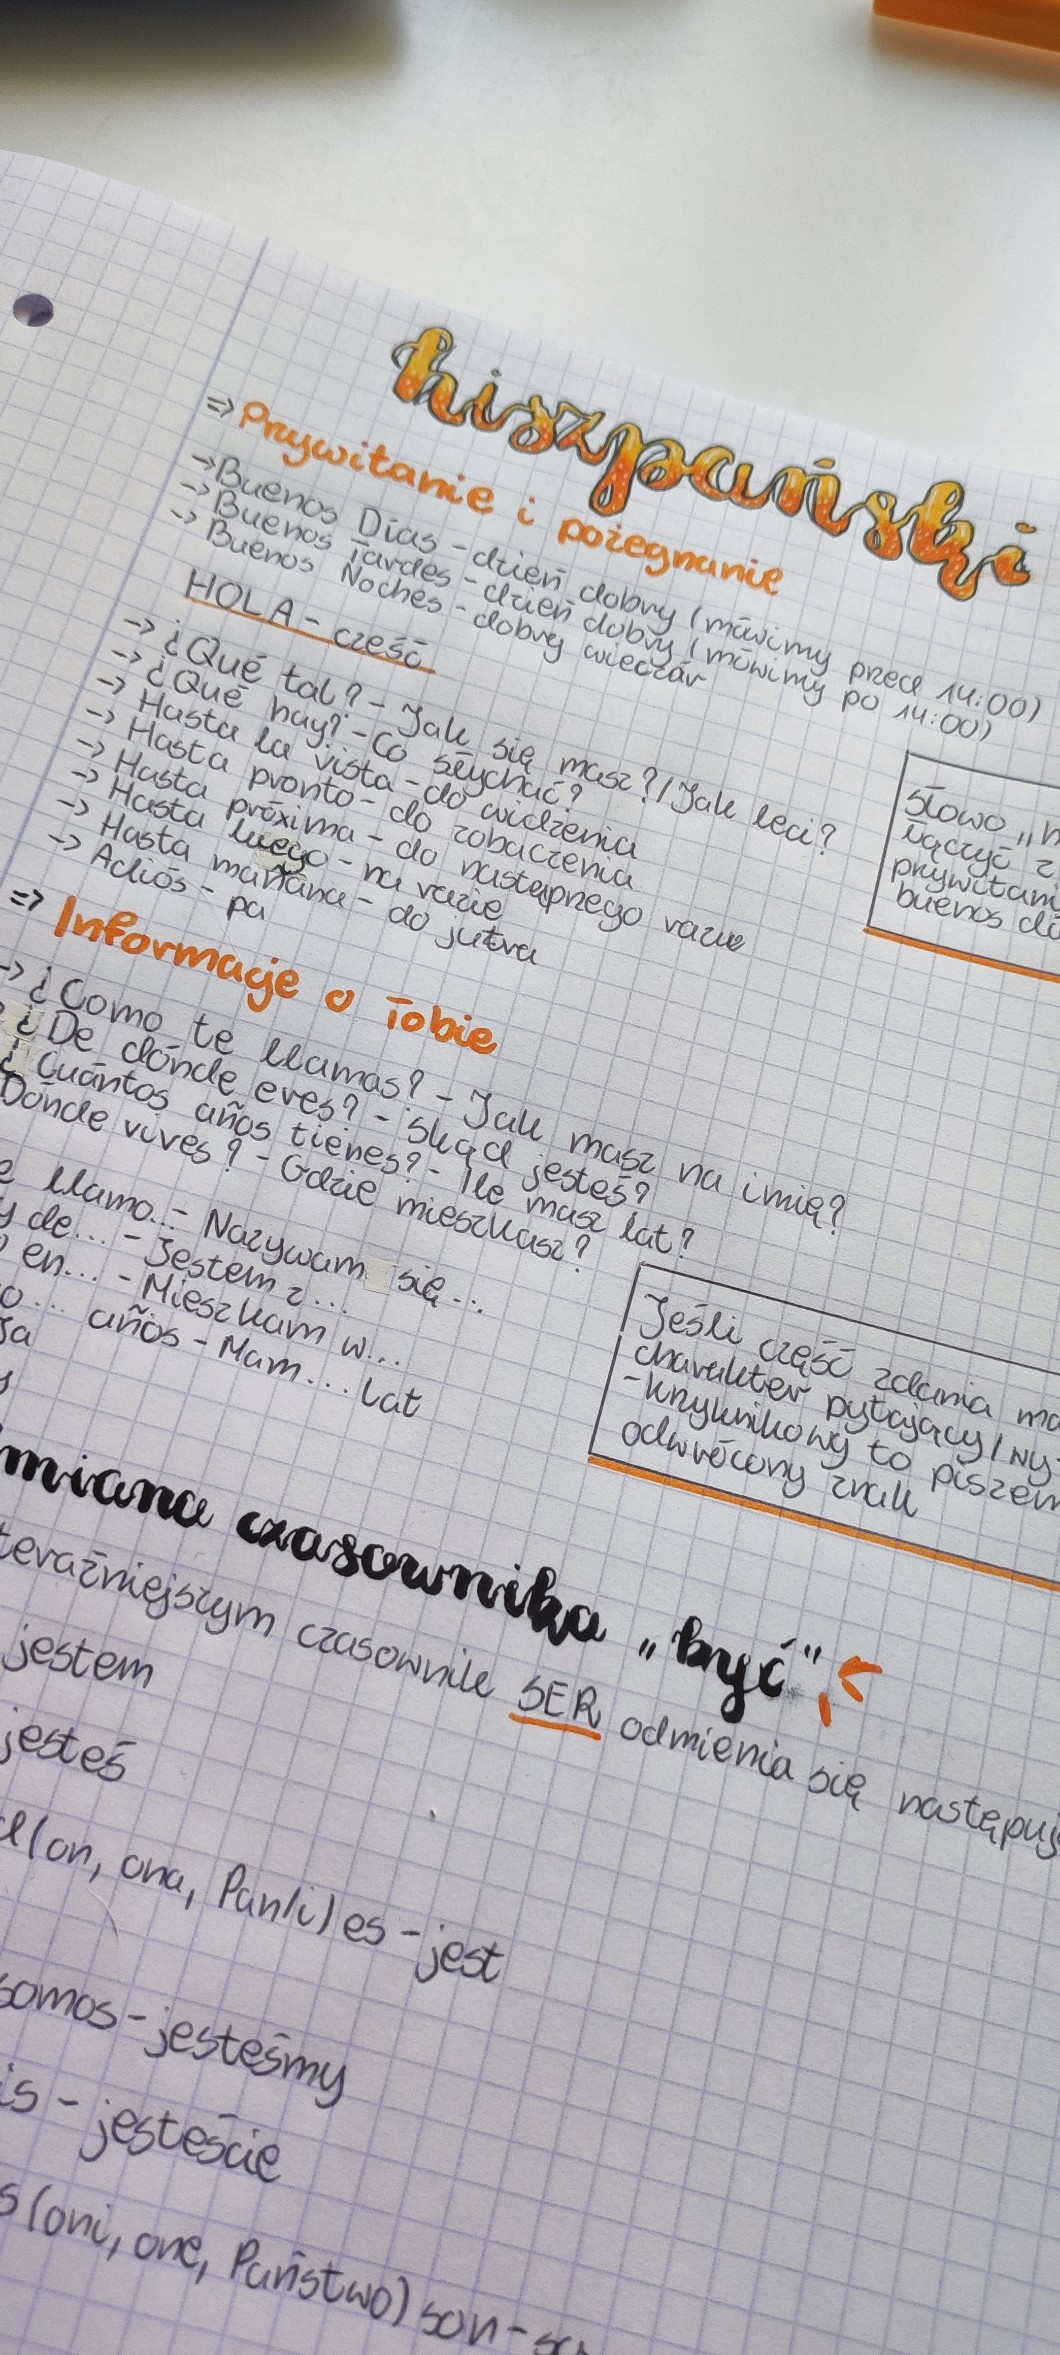 hiszpański
=> Przywitanie i pożegnanie
-> Buenos Días - dzień dobry (mówimy przed 14:00)
-> Buenos Tardes - dzień dobry (mówimy po 14:00)
-> Buenos Noches - dobry wieczór
HOLA - cześć
-> ¿Qué tal? - Jak się masz? / Jak leci?
-> ¿Qué hay? - Co słychać?
-> Hasta la vista - do widzenia
-> Hasta pronto - do zobaczenia
-> Hasta próxima - do następnego razu
-> Hasta luego - na razie
-> Hasta mañana - do jutra
-> Adiós - pa
Słowo „h
łączyć z
przywitani
buenos dí
=> Informacje o Tobie
-> ¿Como te llamas? - Jak masz na imię?
¿De dónde eres? - Skąd jesteś?
¿Cuántos años tienes? - Ile masz lat?
Dónde vives? - Gdzie mieszkasz?
e llamo... - Nazywam się...
y de... - Jestem z...
o en... - Mieszkam w...
o... años - Mam... lat
Ja
Jeśli część zdania ma
charakter pytający/wy-
-krzyknikowy to piszem
odwrócony znak
miana czasownika „być"
teraźniejszym czasownik SER odmienia się następuj
jestem
jesteś
(on, ona, Pan/i) es - jest
somos - jesteśmy
is - jesteście
s (oni, one, Państwo) son - są